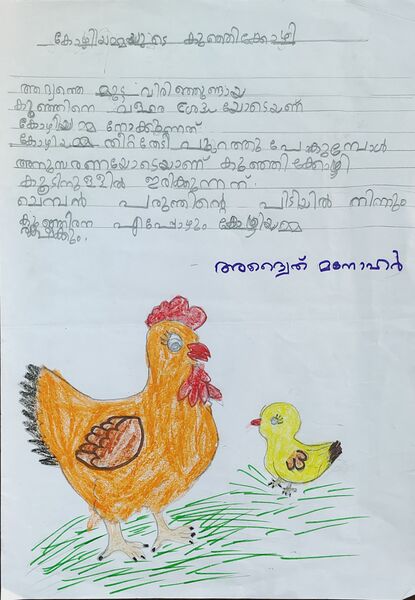 കോഴിയമ്മയുടെ കുഞ്ഞിക്കോഴി
ആദ്യത്തെ മുട്ട വിരിഞ്ഞുണ്ടായ
കുഞ്ഞിനെ വളരെ ശ്രദ്ധയോടെയാണ്
കോഴിയമ്മ നോക്കുന്നത്
കോഴിയമ്മ തീറ്റതേടി പുറത്തു പോകുമ്പോൾ
അനുസരണയോടെയാണ് കുഞ്ഞിക്കോഴി
കൂടിനുള്ളിൽ ഇരിക്കുന്നത്.
ചെമ്പൻ പരുന്തിന്റെ പിടിയിൽ നിന്നും
കുഞ്ഞിനെ എപ്പോഴും കോഴിയമ്മ
രക്ഷിക്കും.
അദ്വൈത് മനോഹർ